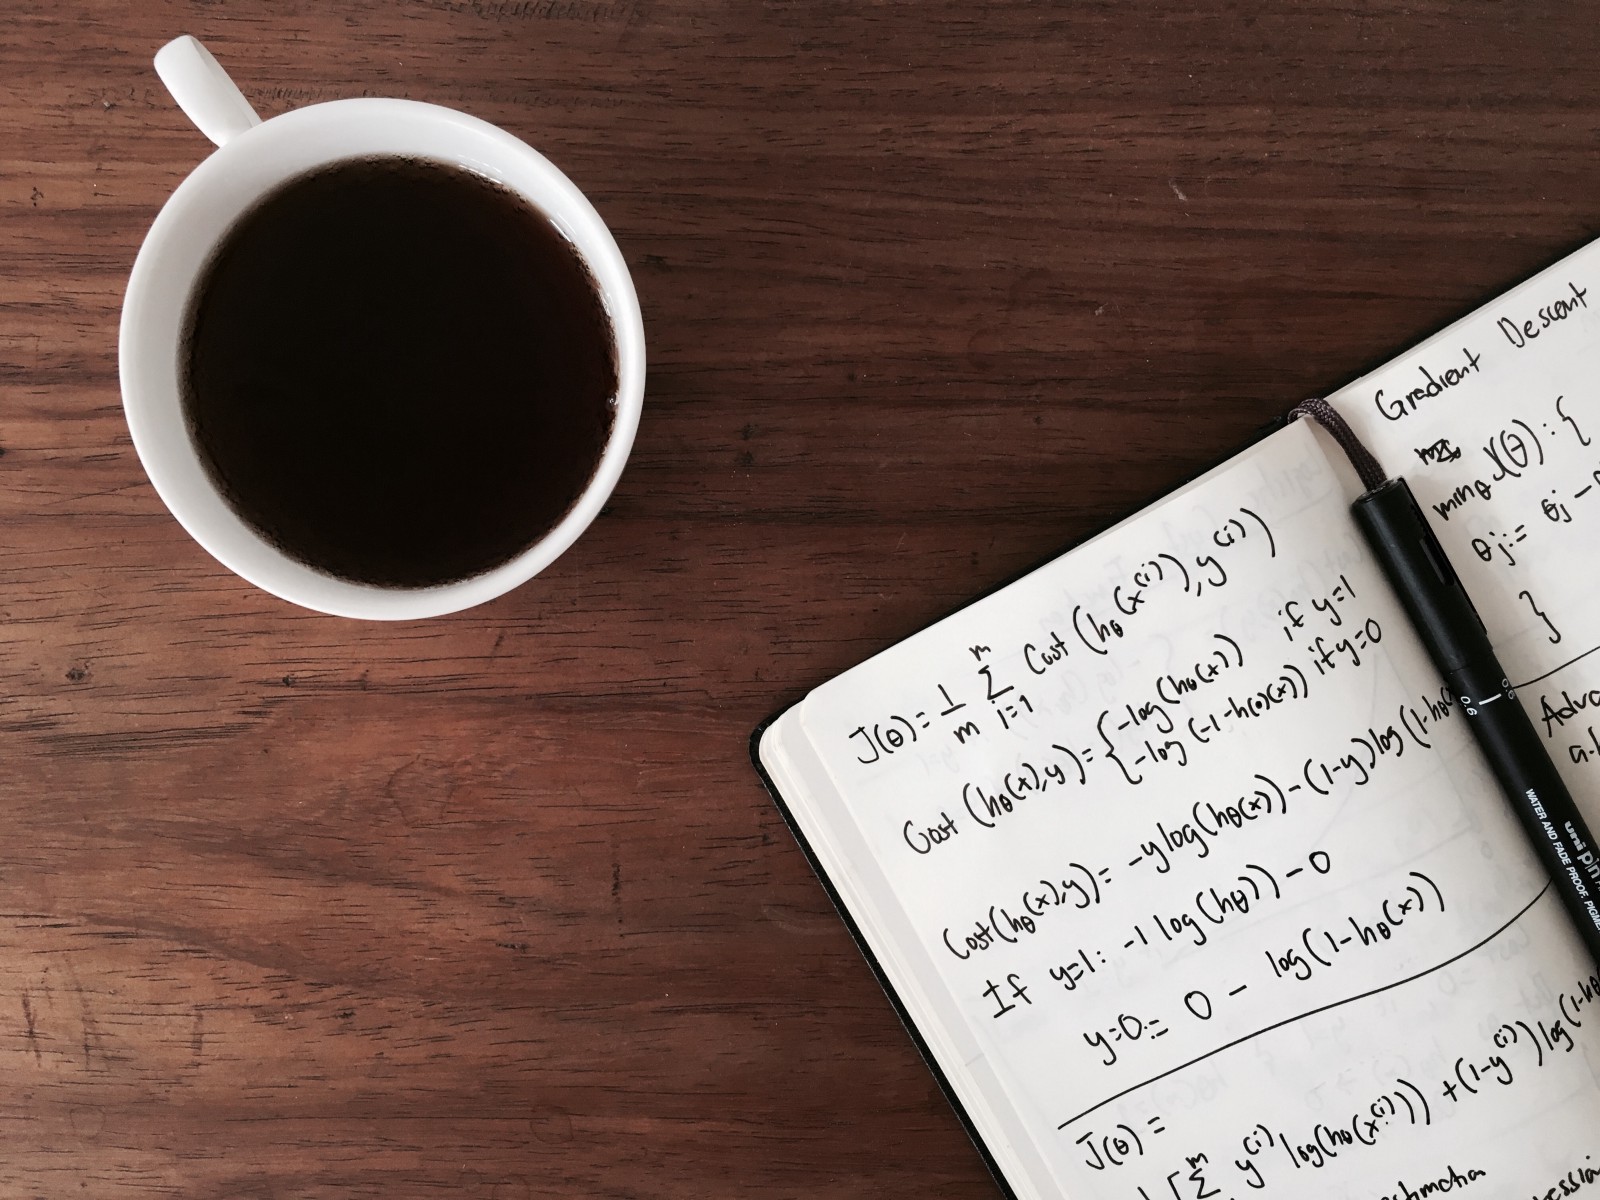 J(θ) = 1/m Σ_{i=1}^{m} Cost (hθ(x^(i)), y^(i))
Cost (hθ(x), y) = { -log(hθ(x)) if y=1
-log (-1-h(θ)(x)) if y=0
Cost(hθ(x), y) = -y log(hθ(x)) - (1-y) log(1-hθ(x
If y=1: -1 log(hθ)) - 0
y=0:= 0 - log(1-hθ(x))
J(θ) =
[Σ^m y^(i) log(hθ(x^(i))) + (1-y^(i)) log(1-hθ
Gradient Descent
minθ J(θ): {
θj := θj -
}
0.6
uni pin
WATER AND FADE PROOF, PIGME